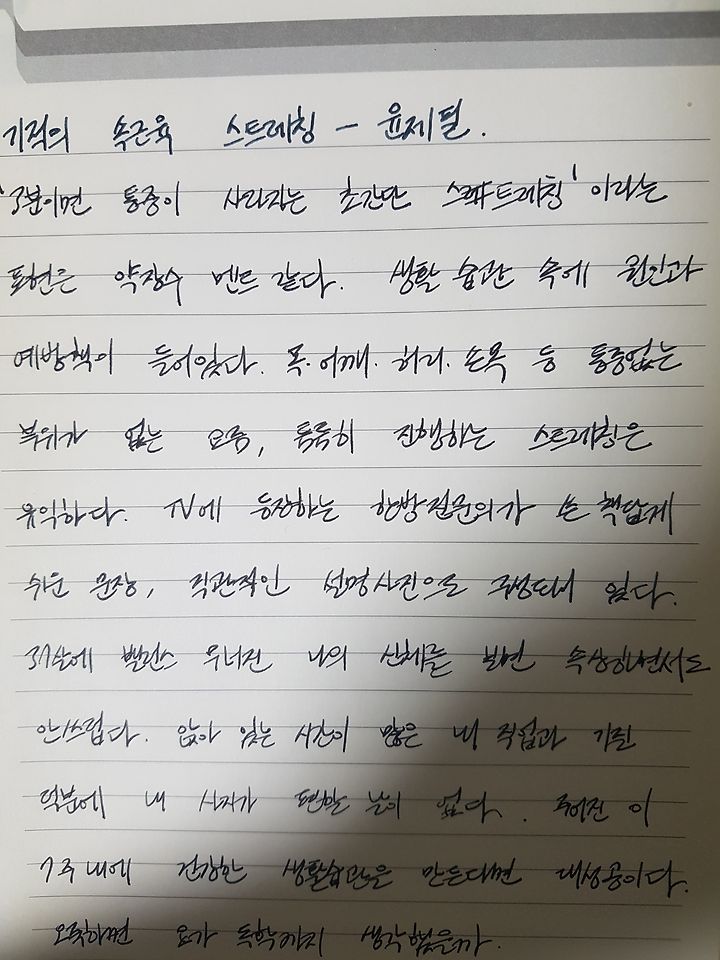 기적의 속근육 스트레칭 - 윤제필.
'3분이면 통증이 사라지는 초간단 스트레칭' 이라는
표현은 약장수 멘트 같다. 생활 습관 속에 원인과
예방책이 들어있다. 목. 어깨. 허리. 손목 등 통증없는
부위가 없는 요즘, 틈틈히 진행하는 스트레칭은
유익하다. TV에 등장하는 한방전문의가 쓴 책답게
쉬운 문장, 직관적인 설명사진으로 구성되어 있다.
37살에 밸런스 무너진 나의 신체를 보면 속상하면서도
안쓰럽다. 앉아 있는 시간이 많은 내 직업과 기질
덕분에 내 사지가 편한 날이 없다. 주어진 이
7주내에 건강한 생활습관을 만든다면 대성공이다.
오죽하면 요가 독학까지 생각했을까.